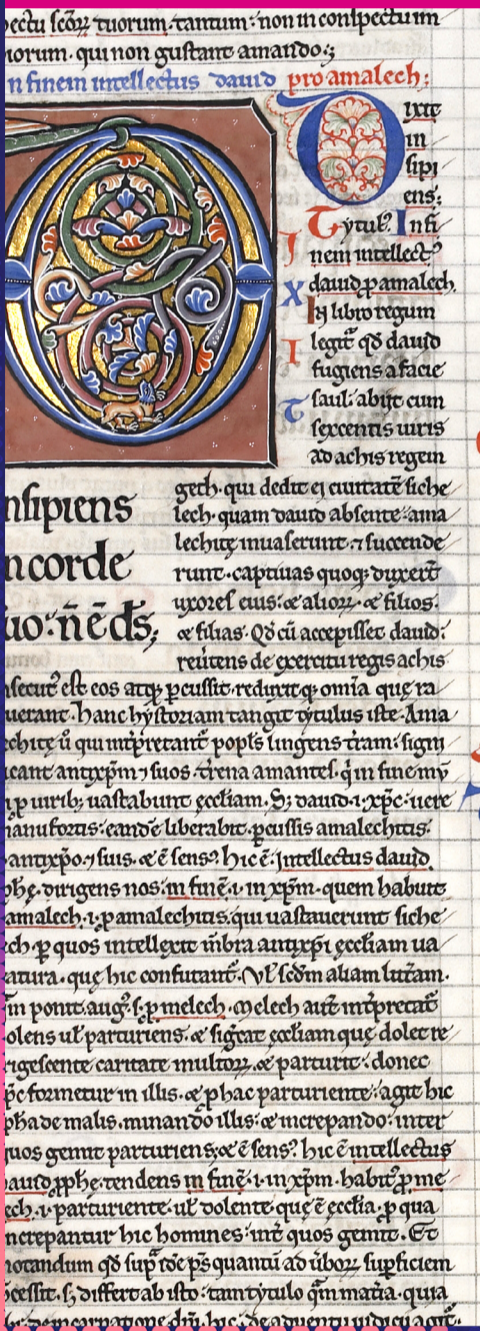 pectu scõꝝ tuorum. tantum: non in conspectu im
iorum. qui non gustant amando:;
n finem intellectus dauid pro amalech:
ixit
in
sipi
ens:
Tytul9. Infi
nem intellect9
dauid ꝓ amalech
In libro regum
legit̃ qđ dauid
fugiens a facie
saul: abijt cum
sexcentis uiris
ad achis regem
geth. qui dedit ei ciuitatẽ siche
lech. quam dauid absente: ama
lechitę inuaserunt. ⁊ succende
runt. captiuas quoqꝫ duxerũt
uxores eius: & alioꝝ. & filios.
& filias. Qđ cũ accepisset dauid:
reũtens de exercitu regis achis
nsipiens
n corde
uo: ñ ẽ dš;
secut9 est eos atqꝫ ꝑcussit. reduxitqꝫ omĩa quę ra
uerant. hanc hystoriam tangit tytulus iste. Ama
echitę ũ qui int̃pretant̃ popl̃s lingens t̃ram: signi
icant antixp̃m ⁊ suos. t̃rena amantes.
uiribꝫ uastabunt ęccl̃iam. Sꝫ dauid .i. xp̃c. uere
manu fortis: eandẽ liberabit. ꝑcussis amalechitis:
antixp̃o. ⁊ suis. & ẽ sens9. hic ẽ: intellectus dauid
phę. dirigens nos: in finẽ .i. in xp̃m. quem habuit
amalech .i. ꝓ amalechitis. qui uastauerunt siche
ech. ꝑ quos intellexit m̃bra antixp̃i ęccl̃iam ua
atura. quę hic confutant̃. Vl̃ scđm aliam lit̃am.
m ponit aug9. s. ꝓ melech. Melech aut̃ int̃pretat̃
olens ul̃ parturiens. & sig̃cat ęccl̃iam quę dolet re
rigescente caritate multoꝝ. & parturit: donec
p̃c formetur in illis. & ꝓ hac parturiente: agit hic
ꝓpha de malis. minando illis: & increpando: inter
quos gemit parturiens; & ẽ sens9. hic ẽ intellectus
auid ꝓphę. tendens in finẽ .i. in xp̃m. habit9 ꝓ me
ech .i. parturiente ul̃ dolente quę ẽ ęccl̃ia. ꝓ qua
ncrepantur hic homines: int̃ quos gemit. Et
notandum qđ sup̃ ps̃ quantũ ad ũboꝝ suꝑficiem
cessit. sꝫ differt ab isto: tam tytulo q̃m mat̃ia. quia
de incarnatione dñi: hic: de aduentu iudicij agit̃.